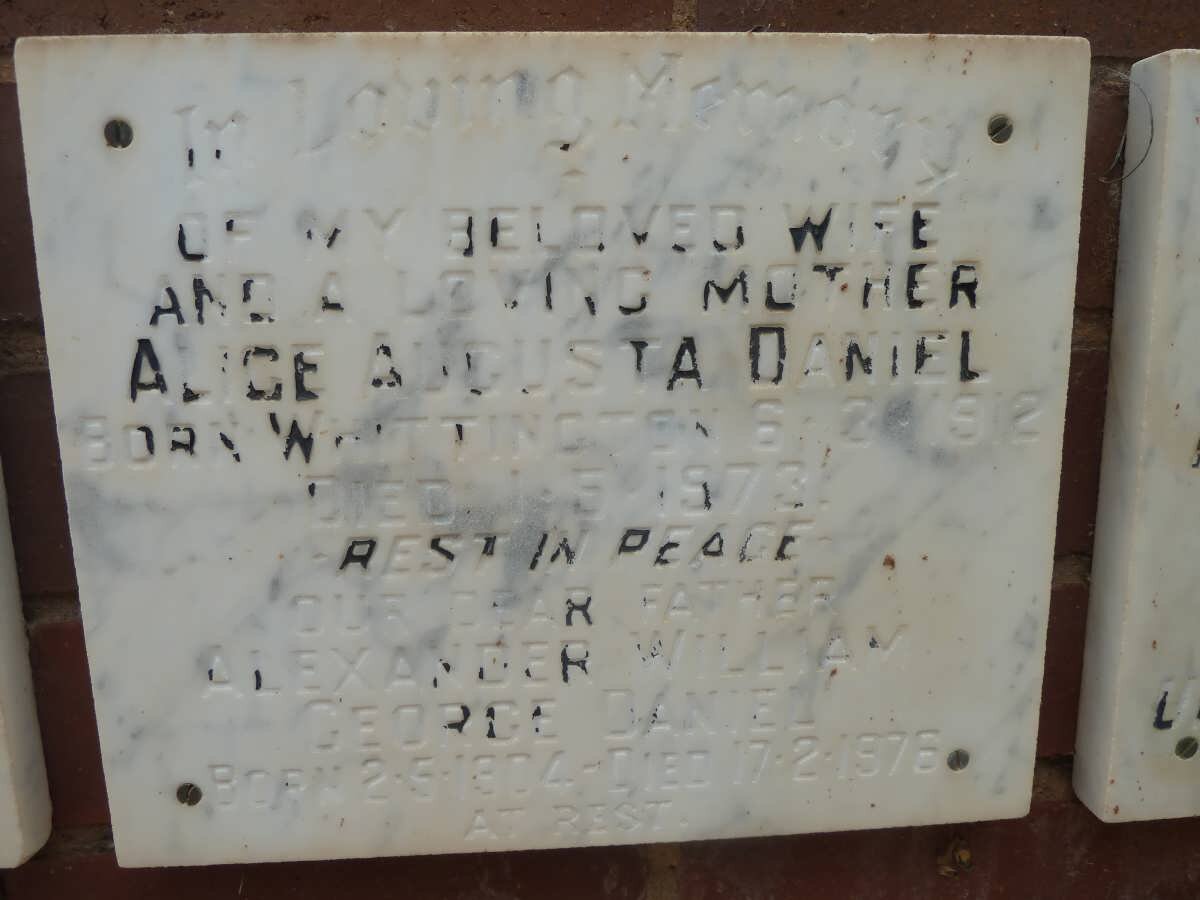 In Loving Memory
OF MY BELOVED WIFE
AND A LOVING MOTHER
ALICE AUGUSTA DANIEL
BORN WHITTINGTON 6·2·1912
DIED 1·5·1973.
-REST IN PEACE-
OUR DEAR FATHER
ALEXANDER WILLIAM
GEORGE DANIEL
BORN 2·5·1904-DIED 17·2·1976
AT REST.